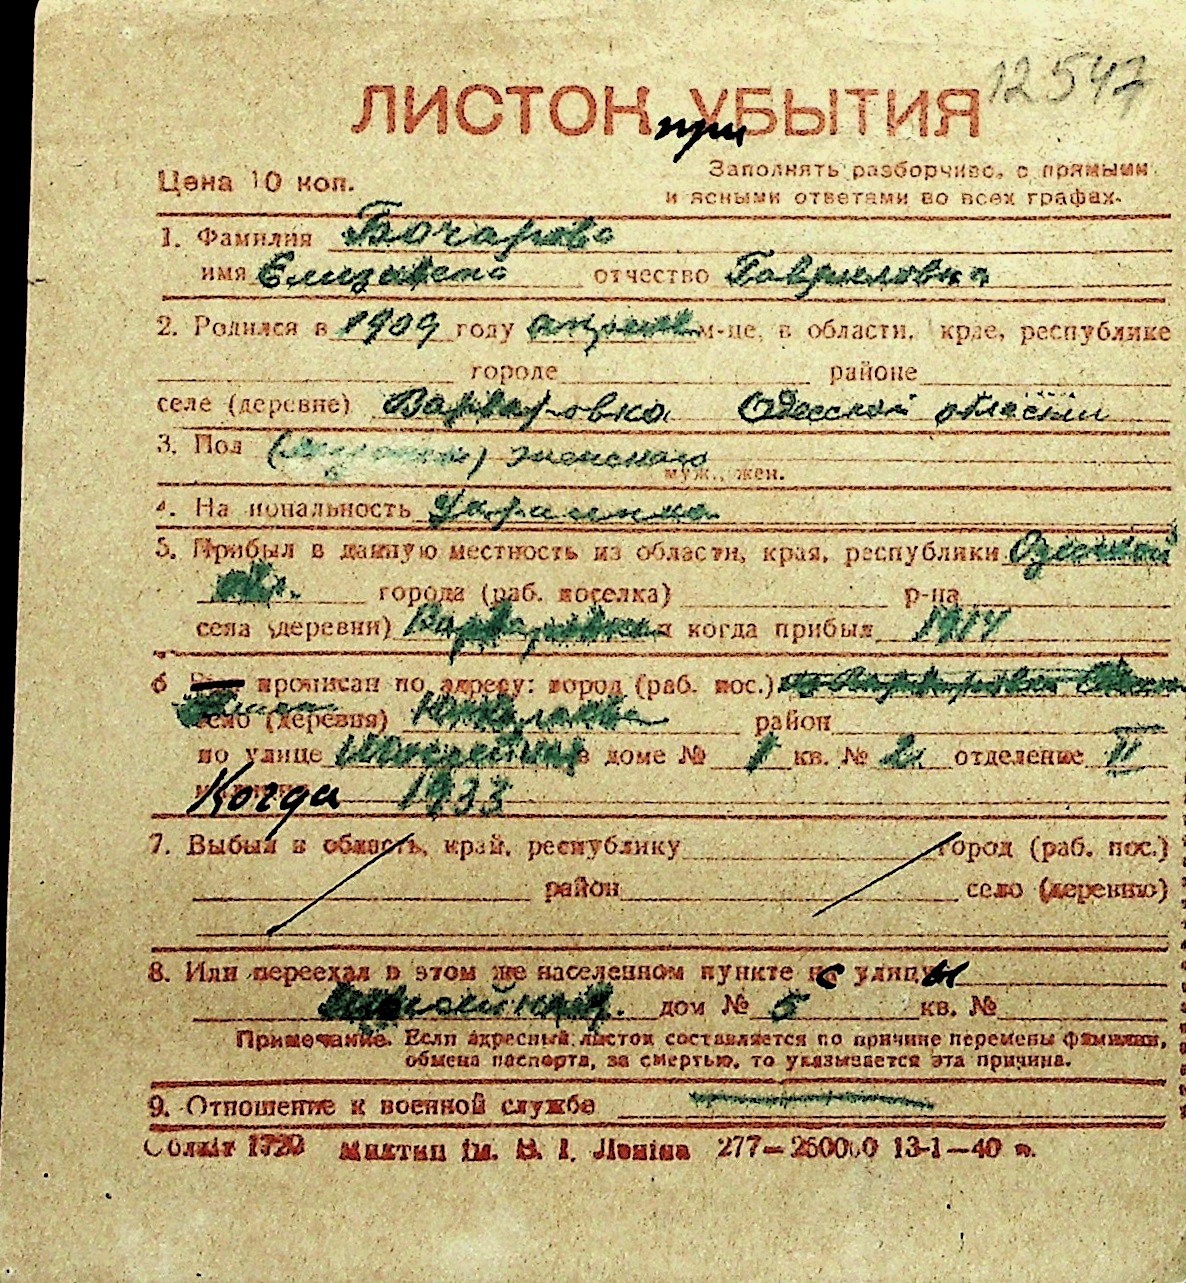 12547
ЛИСТОК при УБЫТИЯ
Цена 10 коп.
Заполнять разборчиво, с прямыми
и ясными ответами во всех графах.
1. Фамилия Бочарова
имя Елизавета отчество Гавриловна
2. Родился в 1909 году апреле м-це, в области, крае, республике
городе районе
селе (деревне) Варваровка Одесской области
3. Пол ( ) женского
муж., жен.
4. Национальность Украинка
5. Прибыл в данную местность из области, края, республики Одесской
обл. города (раб. поселка) р-на
села (деревни) Варваровка и когда прибыл 1914
6 прописан по адресу: город (раб. пос.)
село (деревня) район
по улице в доме № 1 кв. № 2 отделение II
Когда 1933
7. Выбыл в область, край, республику город (раб. пос.)
район село (деревню)
8. Или переехал в этом же населенном пункте с улицы
дом № 5 кв. №
Примечание. Если адресный листок составляется по причине перемены фамилии,
обмена паспорта, за смертью, то указывается эта причина.
9. Отношение к военной службе
Облліт 1720 Миктип ім. В. І. Леніна 277—250000 13-1—40 р.